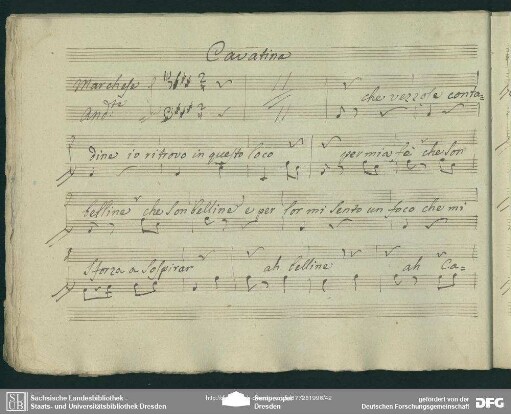 Cavatina
Marchese
And.te
che vezzose conta=
dine io ritrovo in questo loco per mia fè che son
belline che son belline e per lor mi sento un foco che mi
sforza a sospirar ah belline ah Ca=
Sächsische Landesbibliothek
Staats- und Universitätsbibliothek Dresden
Semperoper
Dresden
gefördert von der
Deutschen Forschungsgemeinschaft
DFG